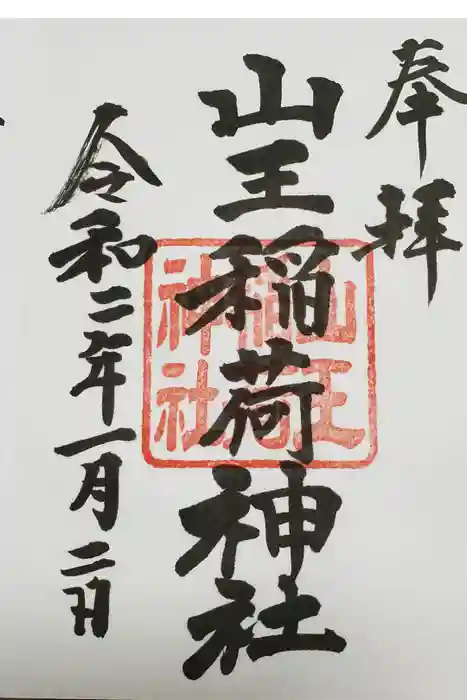 奉拝
山王稲荷神社
山王
稲荷
神社
令和二年一月二日